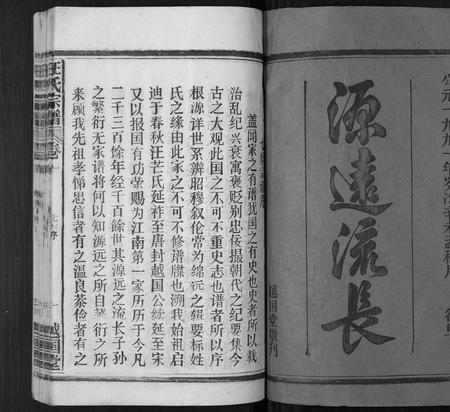 源遠流長
越国堂敬刊
盖闻家之有谱犹国之有史也史者所以载
治乱纪兴衰寓褒贬别忠佞撮朝代之纪要集今
古之大观此国之不可不重史志也谱者所以序
根源详世系辨昭穆叙伦常为绵远之辑要标姓
氏之缘由此家之不可不修谱牒也溯我始祖启
迪于春秋汪芒氏延祚至唐封越国公续延至宋
又以报国有功荣赐为江南第一家历历于今凡
二千三百馀年经千百馀世其源远之流长子孙
之繁衍无家谱将何以知源远之所自蕃衍之所
来顾我先祖孝悌忠信者有之温良恭俭者有之
汪氏宗譜
卷一
序
一
越国堂